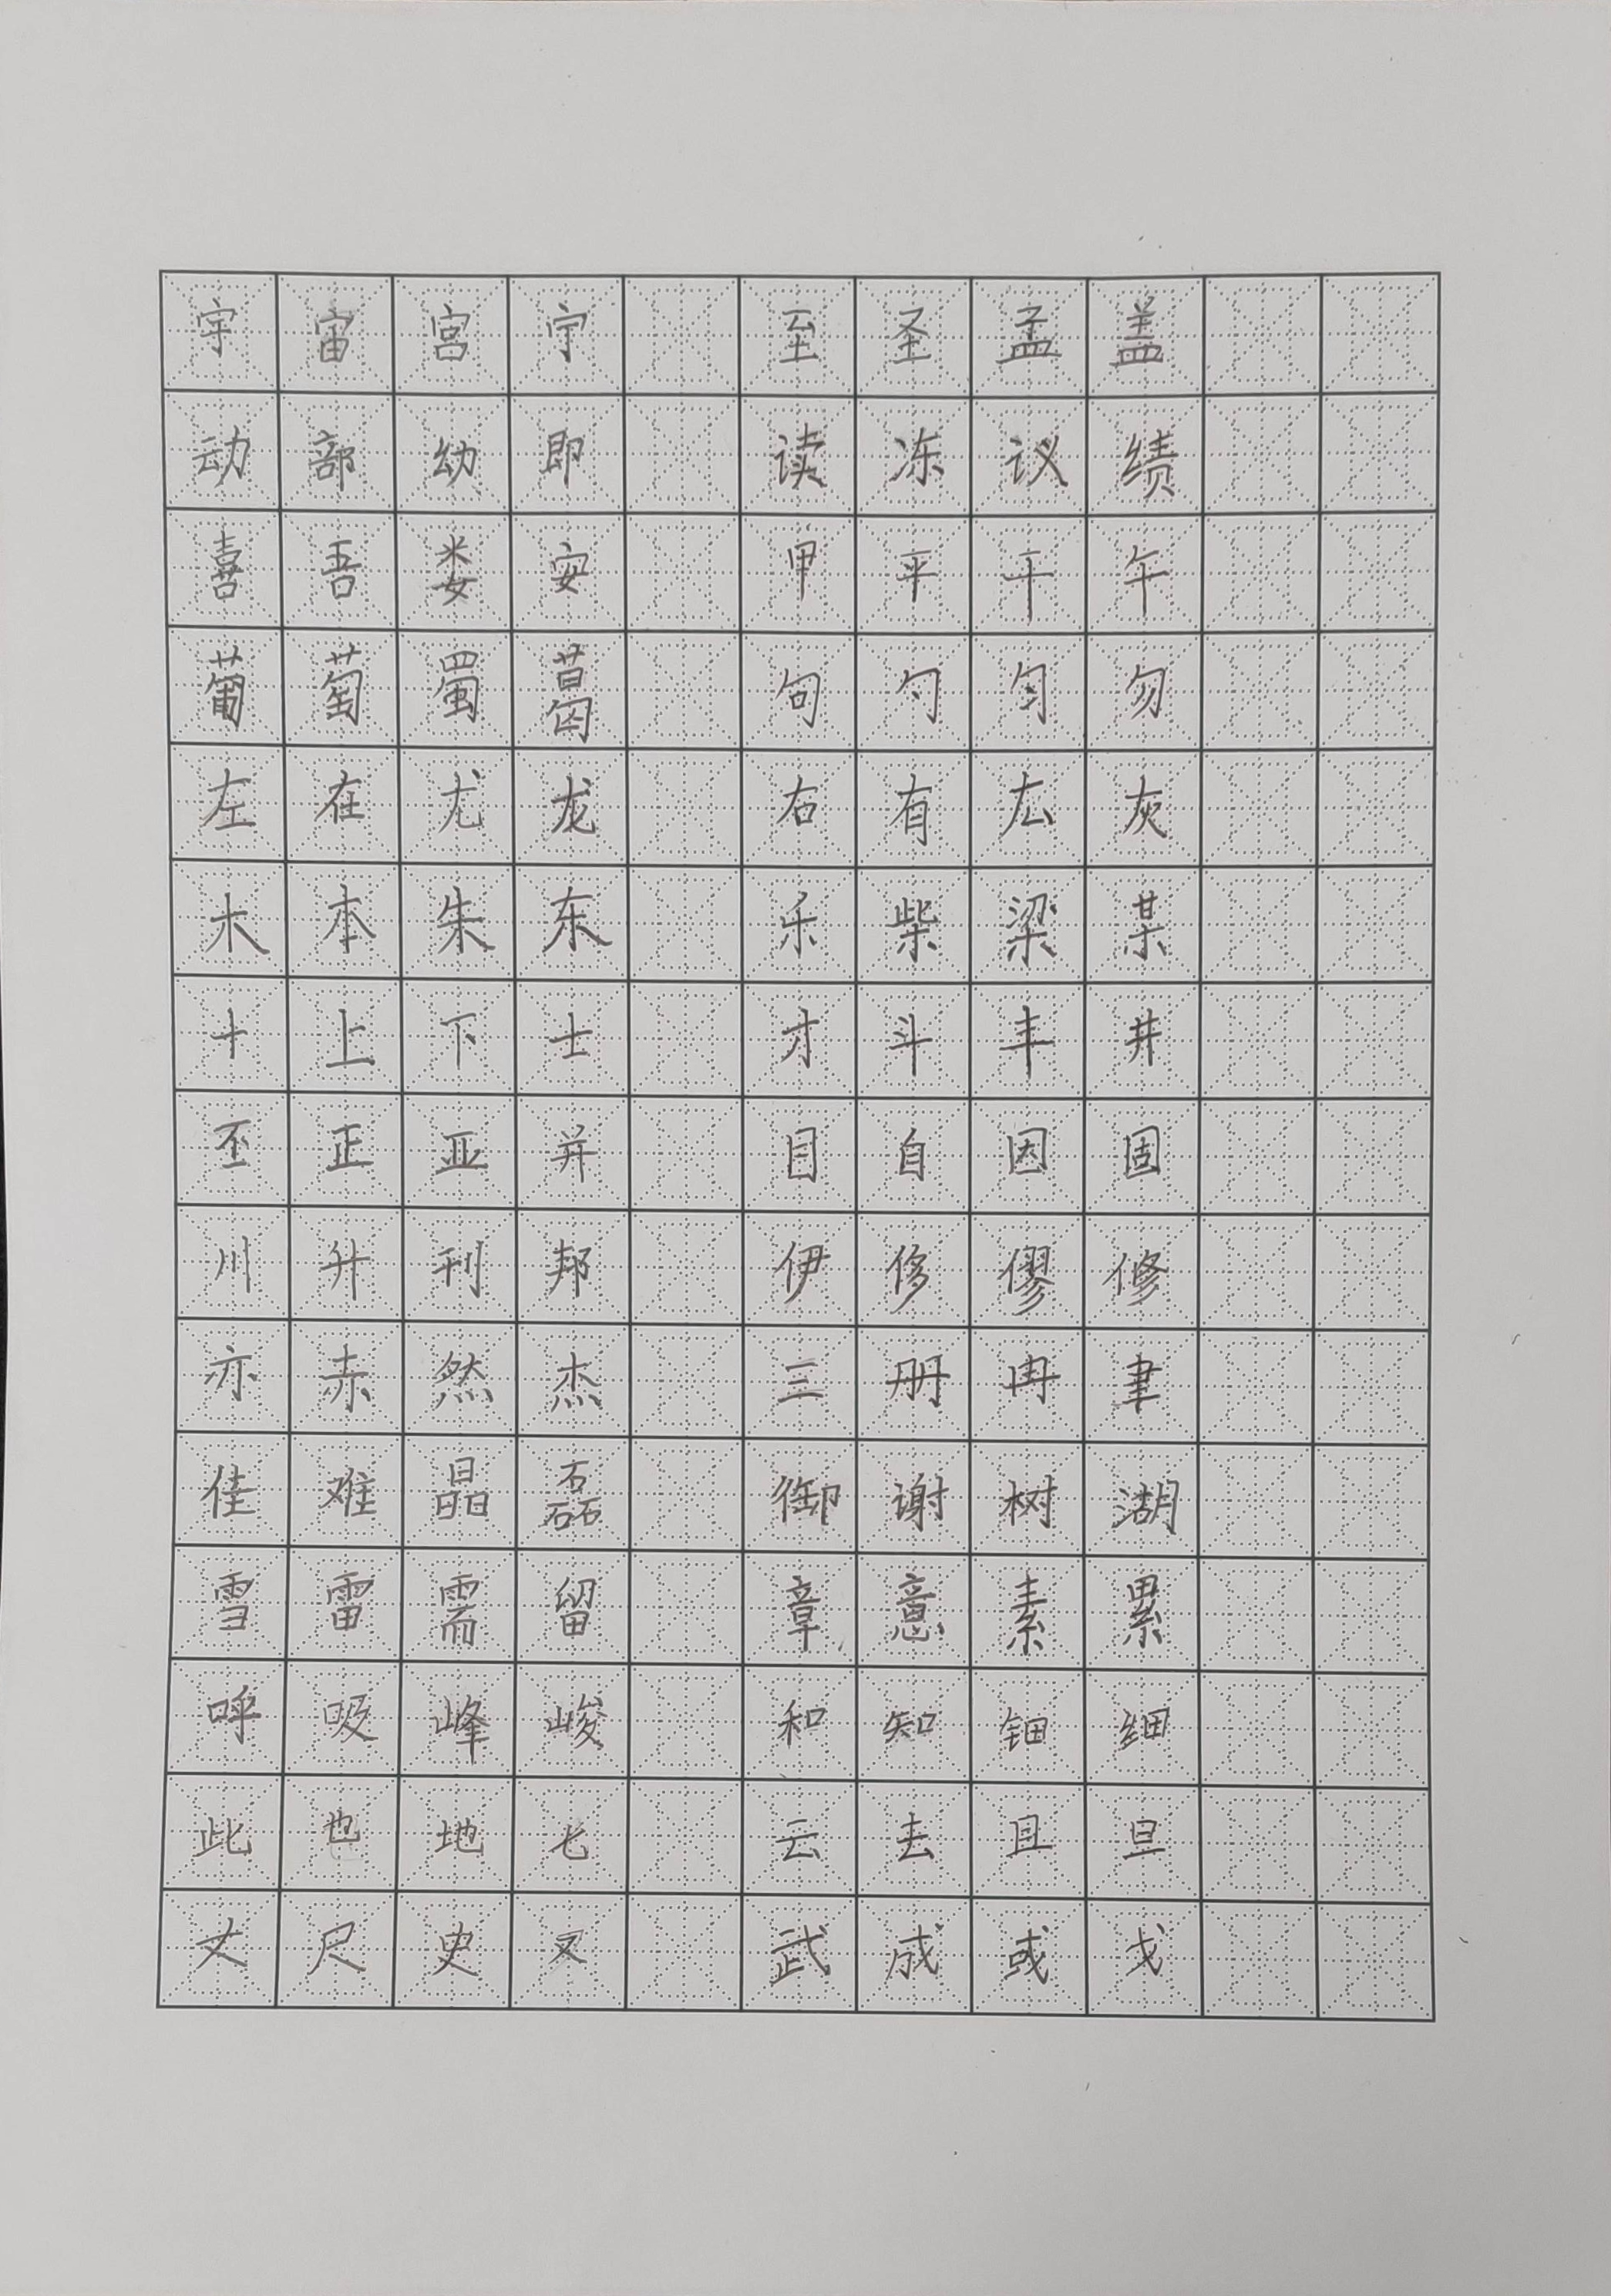 宇宙宫宁 至圣孟盖
动部幼即 读冻议绩
喜吾娄安 甲平干午
葡萄蜀葛 句勺匀勿
左在尤龙 右有厷灰
木本朱东 乐柴梁某
十上下士 才斗丰井
丕正亚并 目自因固
川升刊邦 伊侈僇修
亦赤然杰 三册冉聿
佳难晶磊 御谢树湖
雪雷需留 章意素累
呼吸峰峻 和知钿细
此也地七 云去且旦
丈尺史又 武成或戈